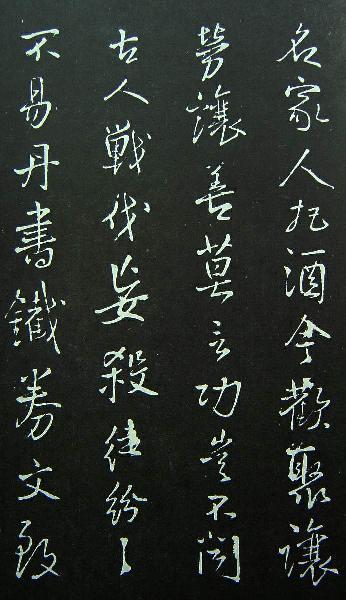 名家人把酒今歡聚讓
勞讓善莫言功豈不聞
古人戦伐妄殺徒紛〻
不易丹書鐵券文